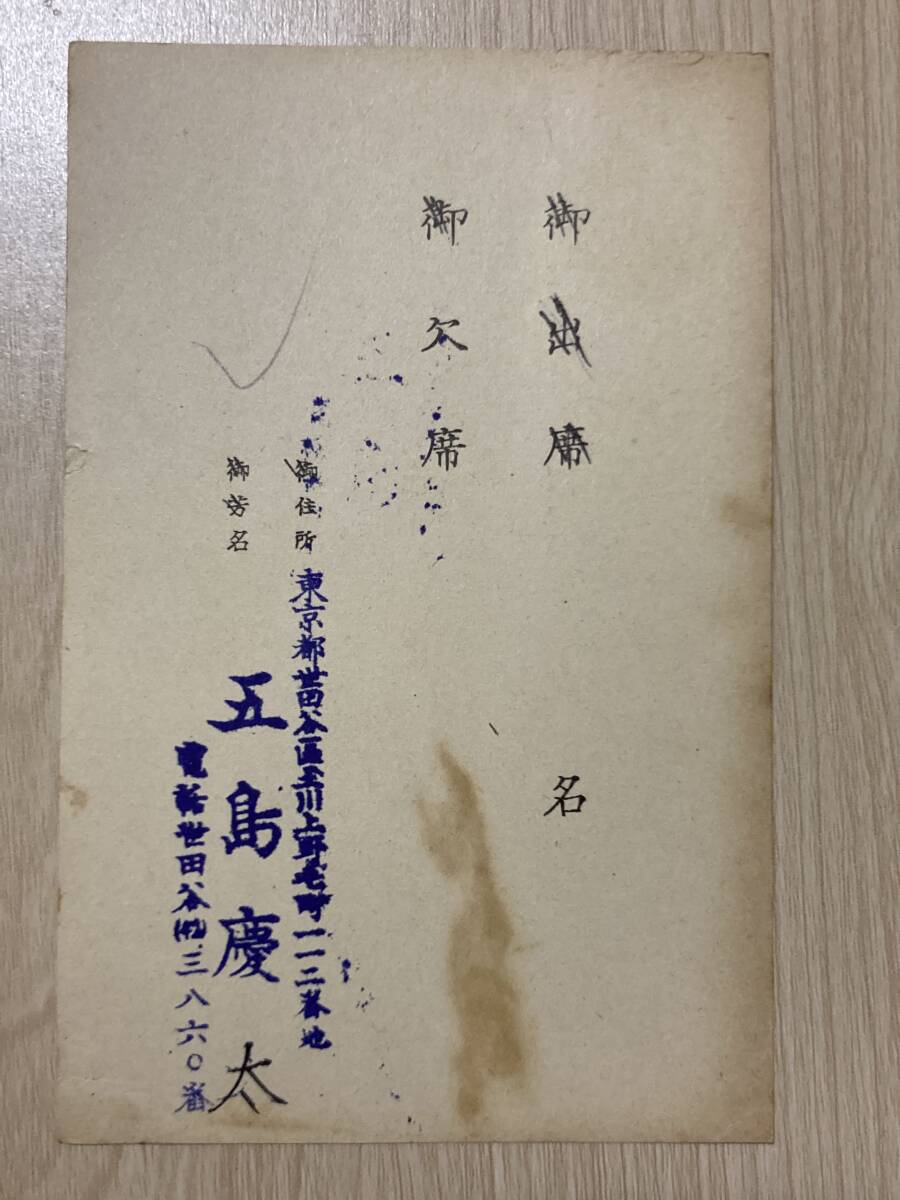 御出席 名
御欠席
御住所 東京都世田谷區玉川上野毛町一一二番地
御芳名 五島慶太
電話世田谷三八六〇番